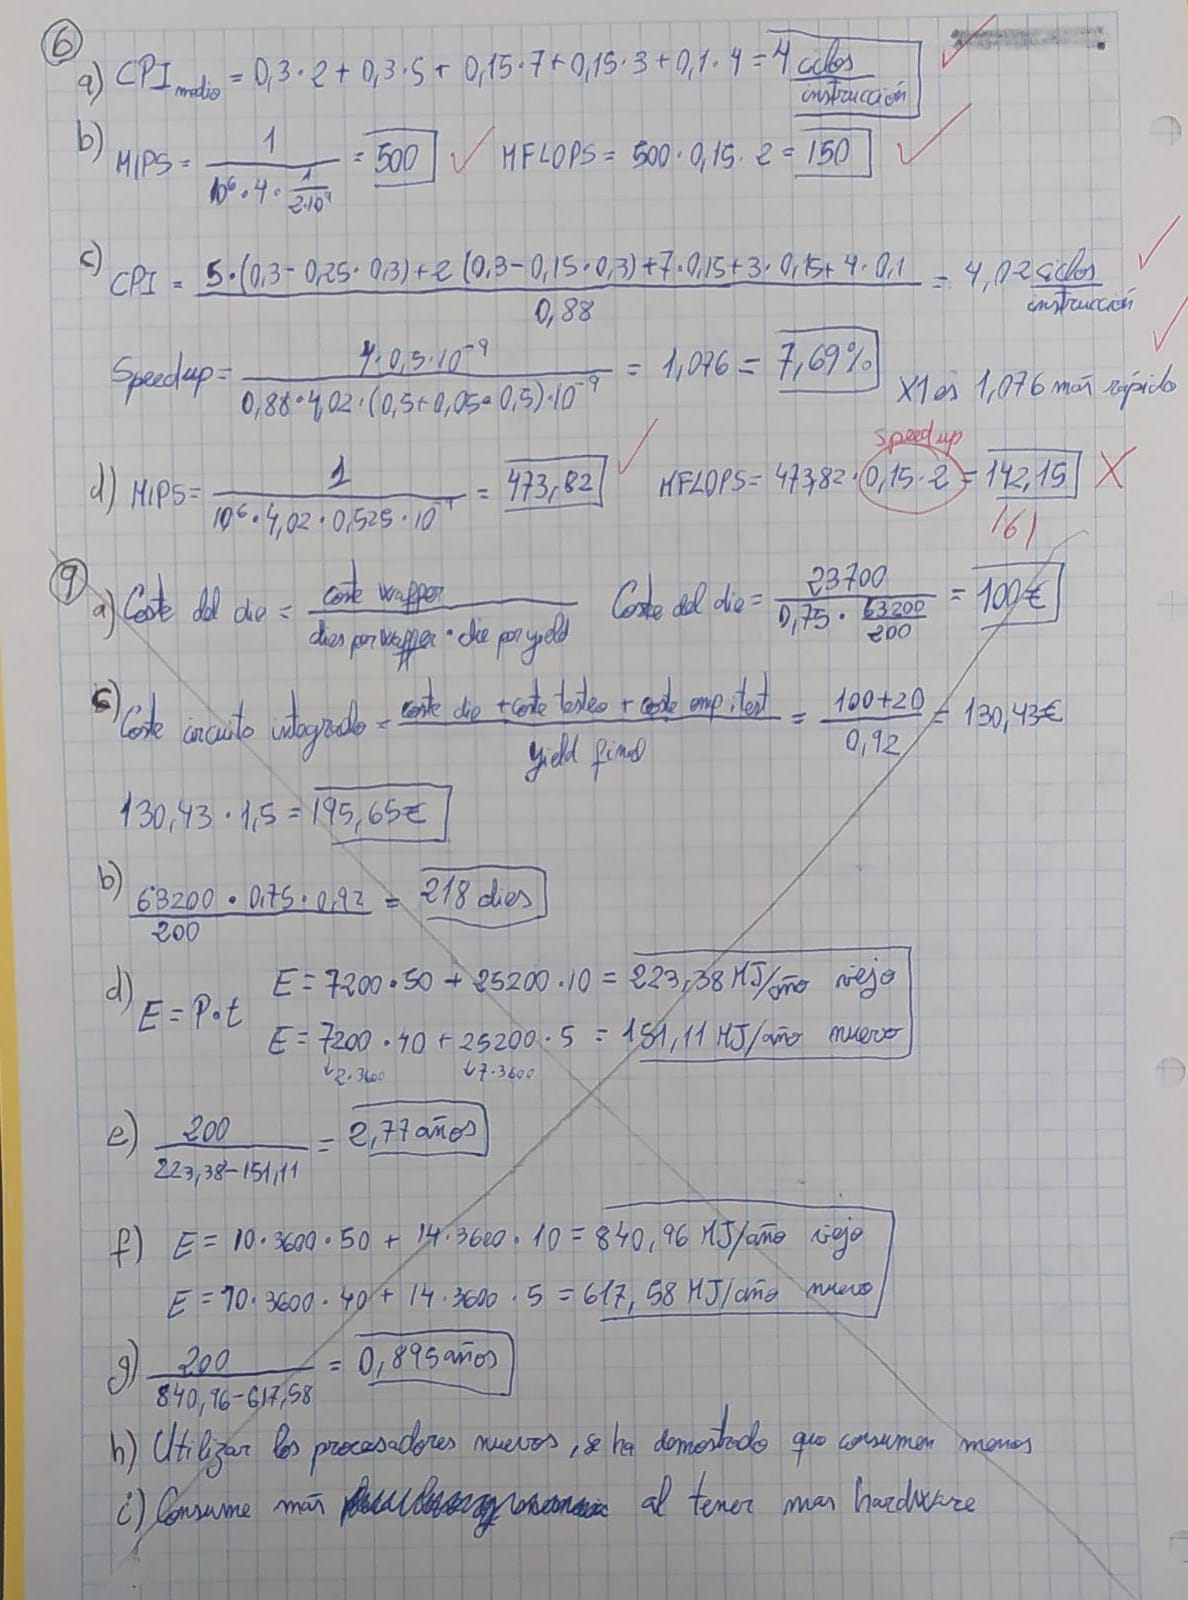 6
a) CPI medio = 0,3·2 + 0,3·5 + 0,15·7 + 0,15·3 + 0,1·4 = 4 ciclos/instrucción
b) MIPS = 1 / (10^6·4·1/(2·10^9)) = 500 MFLOPS = 500·0,15·2 = 150
c) CPI = (5·(0,3-0,25·0,3)+2(0,3-0,15·0,3)+7·0,15+3·0,15+4·0,1) / 0,88 = 4,02 ciclos/instrucción
Speedup = (4·0,5·10^-9) / (0,88·4,02·(0,5+0,05·0,5)·10^-9) = 1,076 = 7,69% X1 es 1,076 más rápido
speedup
d) MIPS = 1 / (10^6·4,02·0,525·10^-9) = 473,82 MFLOPS = 473,82·0,15·2 = 142,15 X
161
9
a) Coste del die = coste waffer / (dies por waffer · die por yield) Coste del die = 23700 / (0,75·63200/200) = 100€
c) Coste circuito integrado = (coste die + coste testeo + coste emp.test) / yield final = (100+20) / 0,92 = 130,43€
130,43·1,5 = 195,65€
b) (63200·0,75·0,92) / 200 = 218 dies
d) E = P·t E = 7200·50 + 25200·10 = 223,38 MJ/año viejo
E = 7200·40 + 25200·5 = 151,11 MJ/año nuevo
↓2·3600 ↓7·3600
e) 200 / (223,38-151,11) = 2,77 años
f) E = 10·3600·50 + 14·3600·10 = 840,96 MJ/año viejo
E = 10·3600·40 + 14·3600·5 = 617,58 MJ/año nuevo
g) 200 / (840,96-617,58) = 0,895 años
h) Utilizar los procesadores nuevos, se ha demostrado que consumen menos
i) Consume más al tener mas hardware